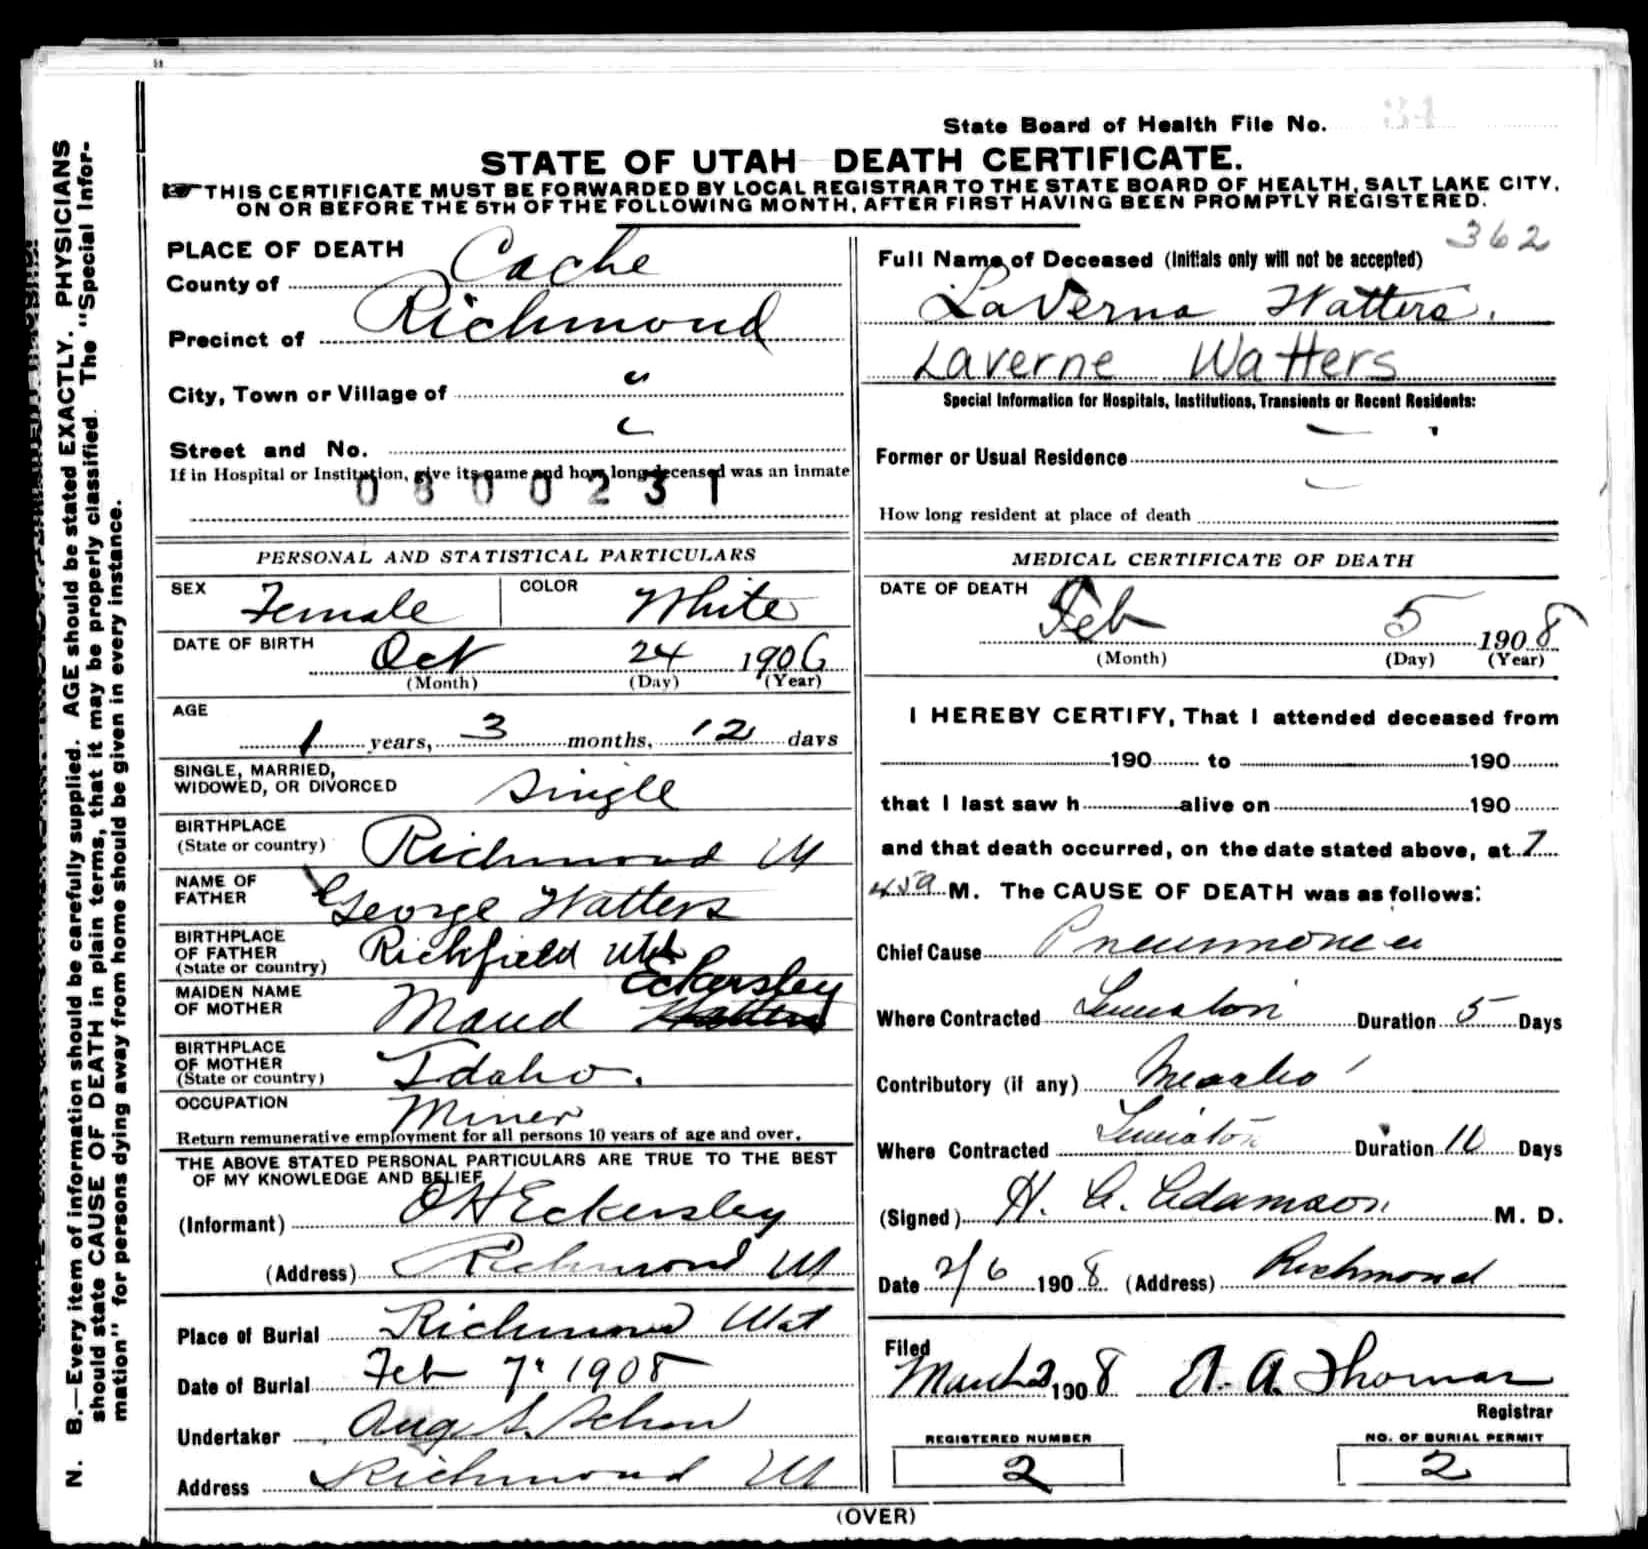 State Board of Health File No. 34
STATE OF UTAH DEATH CERTIFICATE.
THIS CERTIFICATE MUST BE FORWARDED BY LOCAL REGISTRAR TO THE STATE BOARD OF HEALTH, SALT LAKE CITY,
ON OR BEFORE THE 5TH OF THE FOLLOWING MONTH, AFTER FIRST HAVING BEEN PROMPTLY REGISTERED.
PLACE OF DEATH
County of Cache
Precinct of Richmond
City, Town or Village of "
Street and No.
If in Hospital or Institution, give its name and how long deceased was an inmate
0800231
PERSONAL AND STATISTICAL PARTICULARS
SEX Female COLOR White
DATE OF BIRTH
Oct 24 1906
(Month) (Day) (Year)
AGE
1 years, 3 months, 12 days
SINGLE, MARRIED,
WIDOWED, OR DIVORCED Single
BIRTHPLACE
(State or country) Richmond Ut
NAME OF
FATHER George Watters
BIRTHPLACE
OF FATHER
(State or country) Richfield Utah
MAIDEN NAME
OF MOTHER Maud Eckersley
BIRTHPLACE
OF MOTHER
(State or country) Idaho.
OCCUPATION Miner
Return remunerative employment for all persons 10 years of age and over.
THE ABOVE STATED PERSONAL PARTICULARS ARE TRUE TO THE BEST
OF MY KNOWLEDGE AND BELIEF
(Informant) O H Eckersley
(Address) Richmond Ut
Place of Burial Richmond Utah
Date of Burial Feb 7 1908
Undertaker Aug S. Schow
Address Richmond Ut
362
Full Name of Deceased (Initials only will not be accepted)
LaVerna Watters.
Laverne Watters
Special Information for Hospitals, Institutions, Transients or Recent Residents:
Former or Usual Residence
How long resident at place of death
MEDICAL CERTIFICATE OF DEATH
DATE OF DEATH
Feb 5 1908
(Month) (Day) (Year)
I HEREBY CERTIFY, That I attended deceased from
190 to 190
that I last saw h alive on 190
and that death occurred, on the date stated above, at 7
45 a M. The CAUSE OF DEATH was as follows:
Chief Cause Pneumonia
Where Contracted Lewiston Duration 5 Days
Contributory (if any) Measles
Where Contracted Lewiston Duration 10 Days
(Signed) H. G. Adamson M. D.
Date 2/6 1908 (Address) Richmond
Filed
March 2 1908 A. A. Thomas
Registrar
REGISTERED NUMBER
2
NO. OF BURIAL PERMIT
2
(OVER)
N. B.—Every item of information should be carefully supplied. AGE should be stated EXACTLY. PHYSICIANS
should state CAUSE OF DEATH in plain terms, that it may be properly classified. The "Special Infor-
mation" for persons dying away from home should be given in every instance.